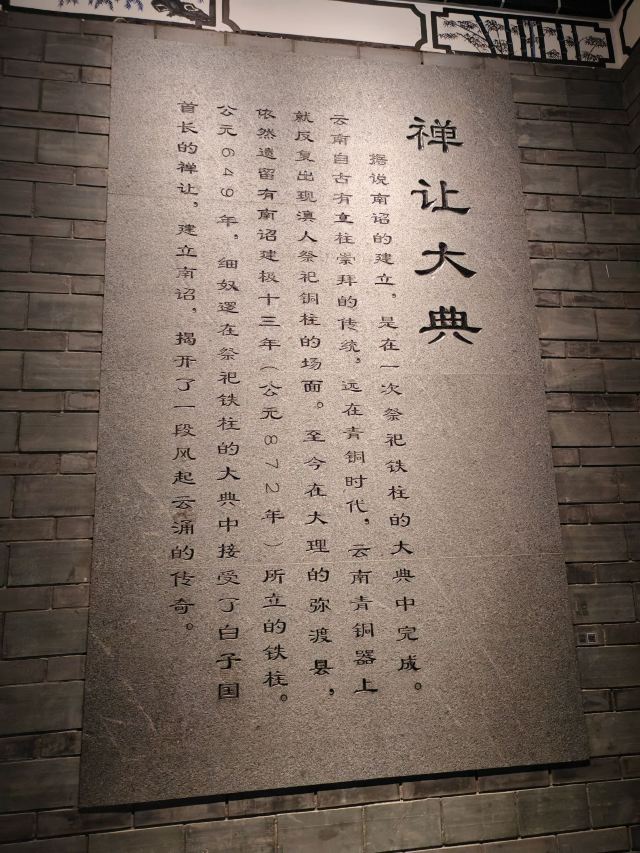 禅让大典
据说南诏的建立，是在一次祭祀铁柱的大典中完成。
云南自古有立柱崇拜的传统，远在青铜时代，云南青铜器上
就反复出现滇人祭祀铜柱的场面。至今在大理的弥渡县，
依然遗留有南诏建极十三年（公元872年）所立的铁柱。
公元649年，细奴逻在祭祀铁柱的大典中接受了白子国
首长的禅让，建立南诏，揭开了一段风起云涌的传奇。